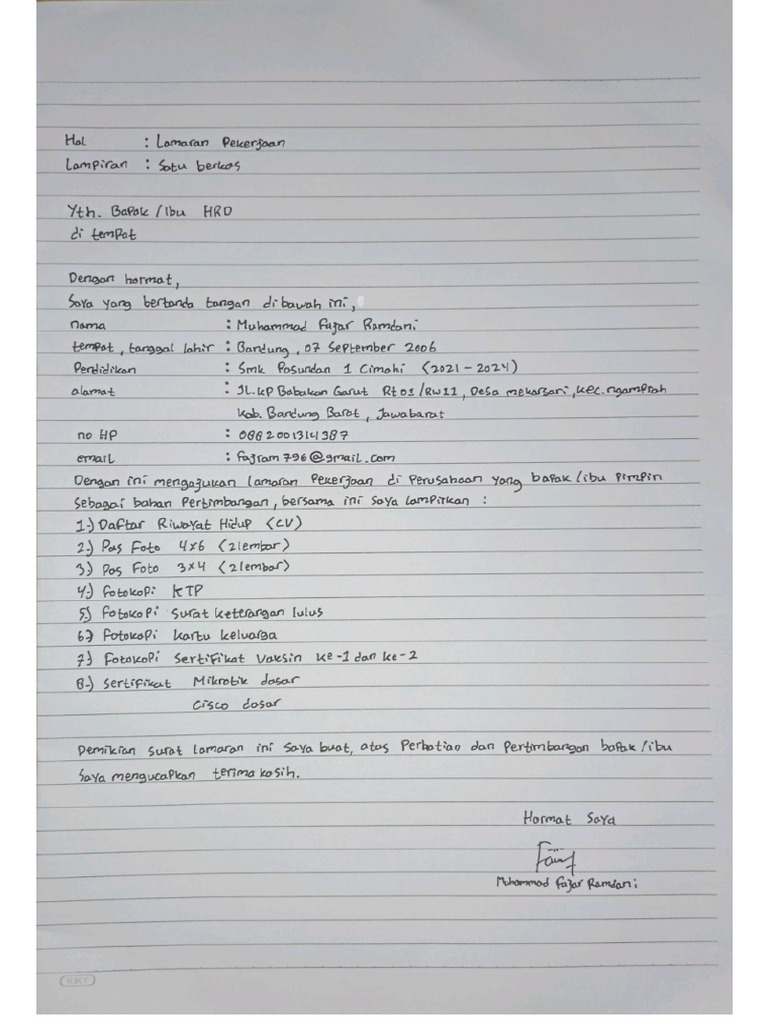 Hal : Lamaran Pekerjaan
Lampiran : Satu berkas
Yth. Bapak / Ibu HRD
di tempat
Dengan hormat,
Saya yang bertanda tangan dibawah ini,
nama : Muhammad Fajar Ramdani
tempat, tanggal lahir : Bandung, 07 September 2006
Pendidikan : Smk Pasundan 1 Cimahi (2021 - 2024)
alamat : JL. KP Babakan Garut Rt 01 / RW 11, Desa mekarsari, kec. ngamprah
Kab. Bandung Barat, Jawabarat
no HP : 0882001314387
email : fajram796@gmail.com
Dengan ini mengajukan lamaran Pekerjaan di Perusahaan yang bapak / ibu Pimpin
Sebagai bahan Pertimbangan, bersama ini saya lampirkan :
1.) Daftar Riwayat Hidup (CV)
2.) Pas Foto 4x6 (2 lembar)
3.) Pas Foto 3x4 (2 lembar)
4.) fotokopi KTP
5.) Fotokopi Surat keterangan lulus
6.) Fotokopi Kartu keluarga
7.) Fotokopi Sertifikat Vaksin ke-1 dan ke-2
8.) Sertifikat Mikrotik dasar
Cisco dasar
Demikian surat lamaran ini saya buat, atas Perhatian dan Pertimbangan bapak / ibu
Saya mengucapkan terima kasih.
Hormat Saya
Muhammad Fajar Ramdani
KIKY